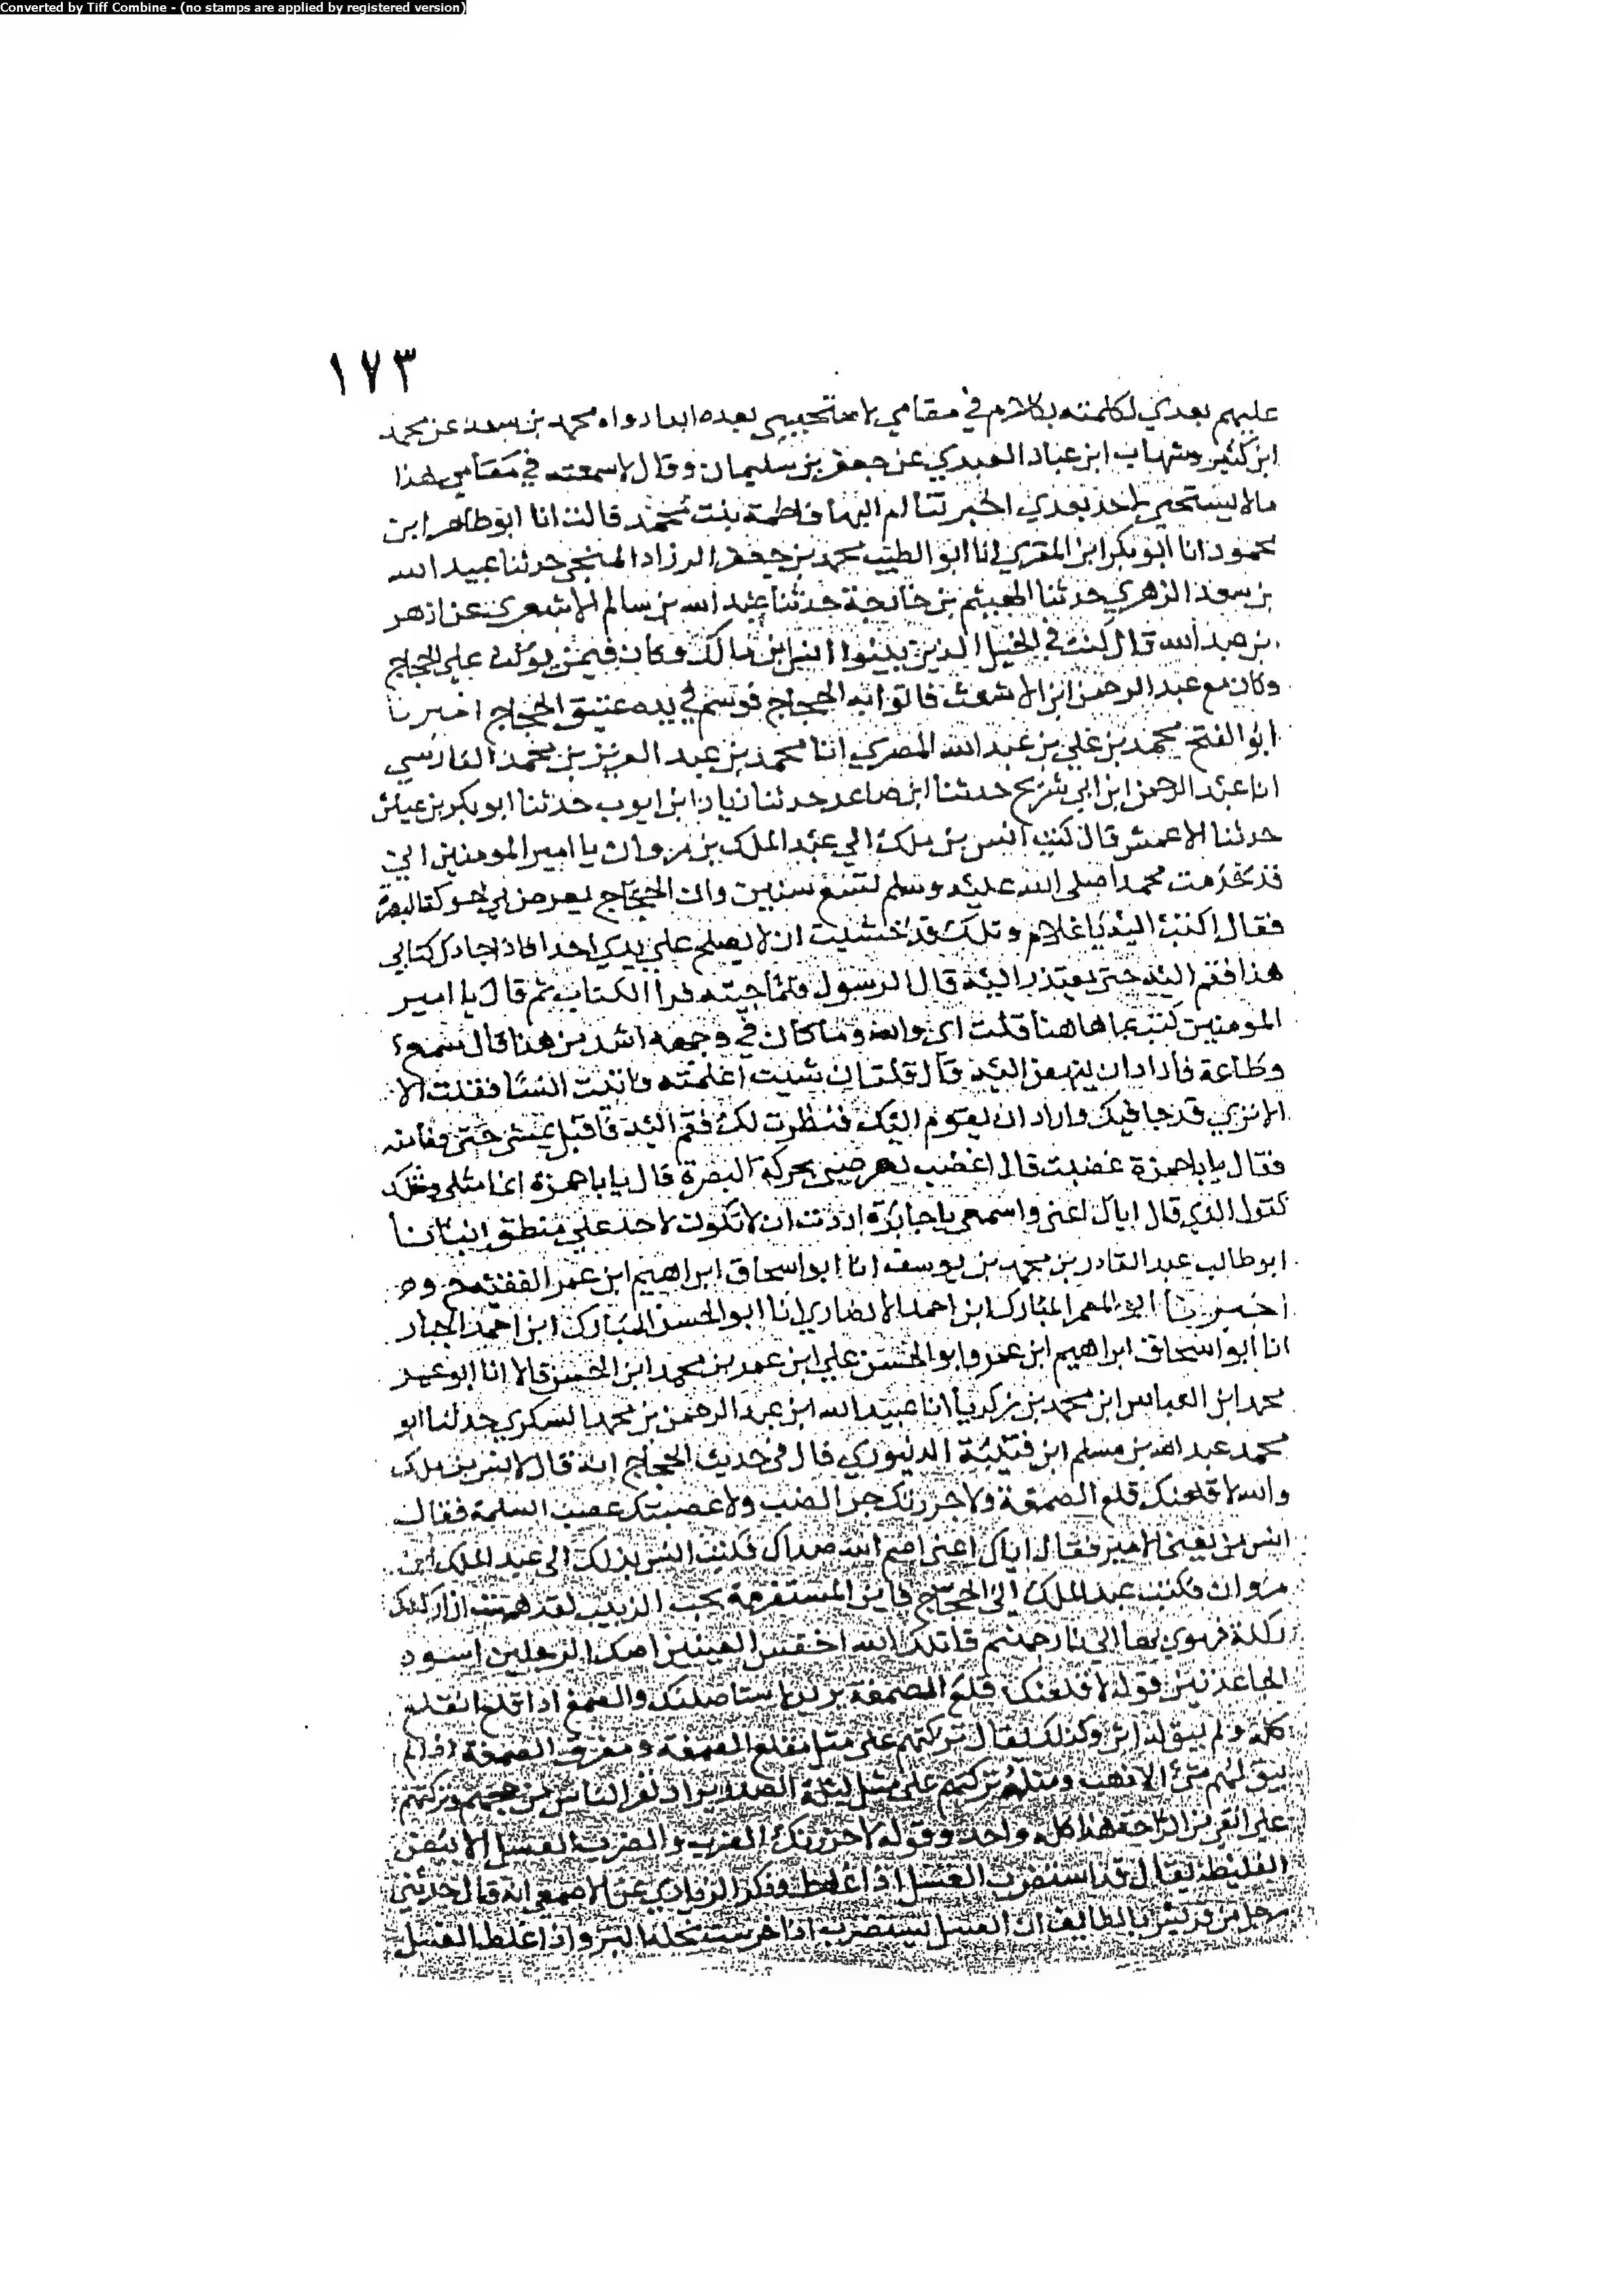 Converted by Tiff Combine - (no stamps are applied by registered version)
١٧٣
عليهم بعدي لكلمته بكلام في مقامي لا ستحييى بعده ابدا رواه محمد بن سعد عن محمد
ابن كثير وشهاب ابن عباد العبدي عن جعفر بن سليمان وقال لاسمعته في مقامي هذا
مالا يستحيى لاحد بعدي اخبرتنا ام البها فاطمة بنت محمد قالت انا ابو طاهر ابن
محمود انا ابو بكر ابن المقري انا ابو الطيب محمد بن جعفر الزراد المنبجي حدثنا عبيد الله
بن سعد الزهري حدثنا الهيثم بن خارجة حدثنا عبد الله بن سالم الاشعري عن ازهر
بن عبد الله قال كنت في الخيل الذين بيتوا انس ابن مالك وكان فيمن يولب على الحجاج
وكان مع عبد الرحمن ابن الاشعث فاتوا به الحجاج فوسم في يده عتيق الحجاج اخبرنا
ابو الفتح محمد بن علي بن عبد الله المصري انا محمد بن عبد العزيز بن محمد الفارسي
انا عبد الرحمن ابن ابي شريح حدثنا ابن صاعد حدثنا زياد ابن ايوب حدثنا ابو بكر بن عياش
حدثنا الاعمش قال كتب انس بن ملك الي عبد الملك بن مروان يا امير المومنين اني
قد خدمت محمدا صلى الله عليه وسلم لتسع سنين وان الحجاج يعرض لي حوكة البصرة
فقال اكتب اليه يا غلام وتلك قد خشيت ان لا يصلح على يدي احدا فاذا جاك كتابي
هذا فقم اليه حتى يعتذر اليه قال الرسول فلما جيته قرا الكتاب ثم قال يا امير
المومنين كتب بما هاهنا قلت اي والله وما كان في وجهه اشد من هذا قال سمع
وطاعة فاراد ان ينهض اليه قال قلت ان شيت اعلمته فاتيت انسا فقلت الا
الا تري قد جا فيك واراد ان يقوم اليك فنظرت لك فقم اليه فاقبل يمشي حتى
فقال يا باحمزة غضبت قال اغضب يعرضني بحركة البصرة قال يا باحمزة انما مثلي ومثلك
كقول الذي قال اياك اعني واسمعي يا جارة اردت ان لا تكون لاحد علي منطق انبانا
ابو طالب عبد القادر بن محمد بن يوسف انا ابو اسحاق ابراهيم ابن عمر الفقيه ح و
اخبرنا ابو المعمر المبارك ابن احمد الانصاري انا ابو الحسن المبارك ابن احمد الجبار
انا ابو اسحاق ابراهيم ابن عمر وابو الحسن علي ابن عمر بن محمد ابن الحسن قالا انا ابو عمر
محمد ابن العباس ابن محمد بن زكريا انا عبيد الله ابن عبد الرحمن بن محمد السكري حدثنا ابو
محمد عبد الله بن مسلم ابن قتيبة الدينوري قال في حديث الحجاج انه قال لانس بن ملك
والله لا قلعنك قلع الصمغة ولا جزرنك جزر الضرب ولا عصبنك عصب السلمة فقال
انس من يعني الامير فقال اياك اعني اصم الله صداك فكتب انس بذلك الى عبد الملك ابن
مروان فكتب عبد الملك الى الحجاج يا ابن المستفرمة بحب الزبيب لقد هممت ان اركلك
ركلة تهوي بها الي نار جهنم قاتلك الله اخفش العينين اصك الرجلين اسود
الجاعرتين قوله لا قلعنك قلع الصمغة يريد لا ستاصلنك والصمغ اذا قلع انقلع
كله ولم يبق له اثر وكذلك يقال تركتهم على مثل مقلع الصمغة ومقرف الصمغة اذا لم
يبق لهم شئ الا ذهب ومثله تركتهم على مثل ليلة الصدر يراد نفر الناس من حجهم وتركتهم
على انقى من الراحة هذا كله واحد وقوله لا جزرنك الضرب والضرب العسل الابيض
الغليظ يقال قد استضرب العسل اذا غلظ وذكر الزيادي عن الاصمعي انه قال حدثني
رجل من قريش بالطايف ان العسل يستضرب اذا جرست نحله البر واذا غلظ العسل